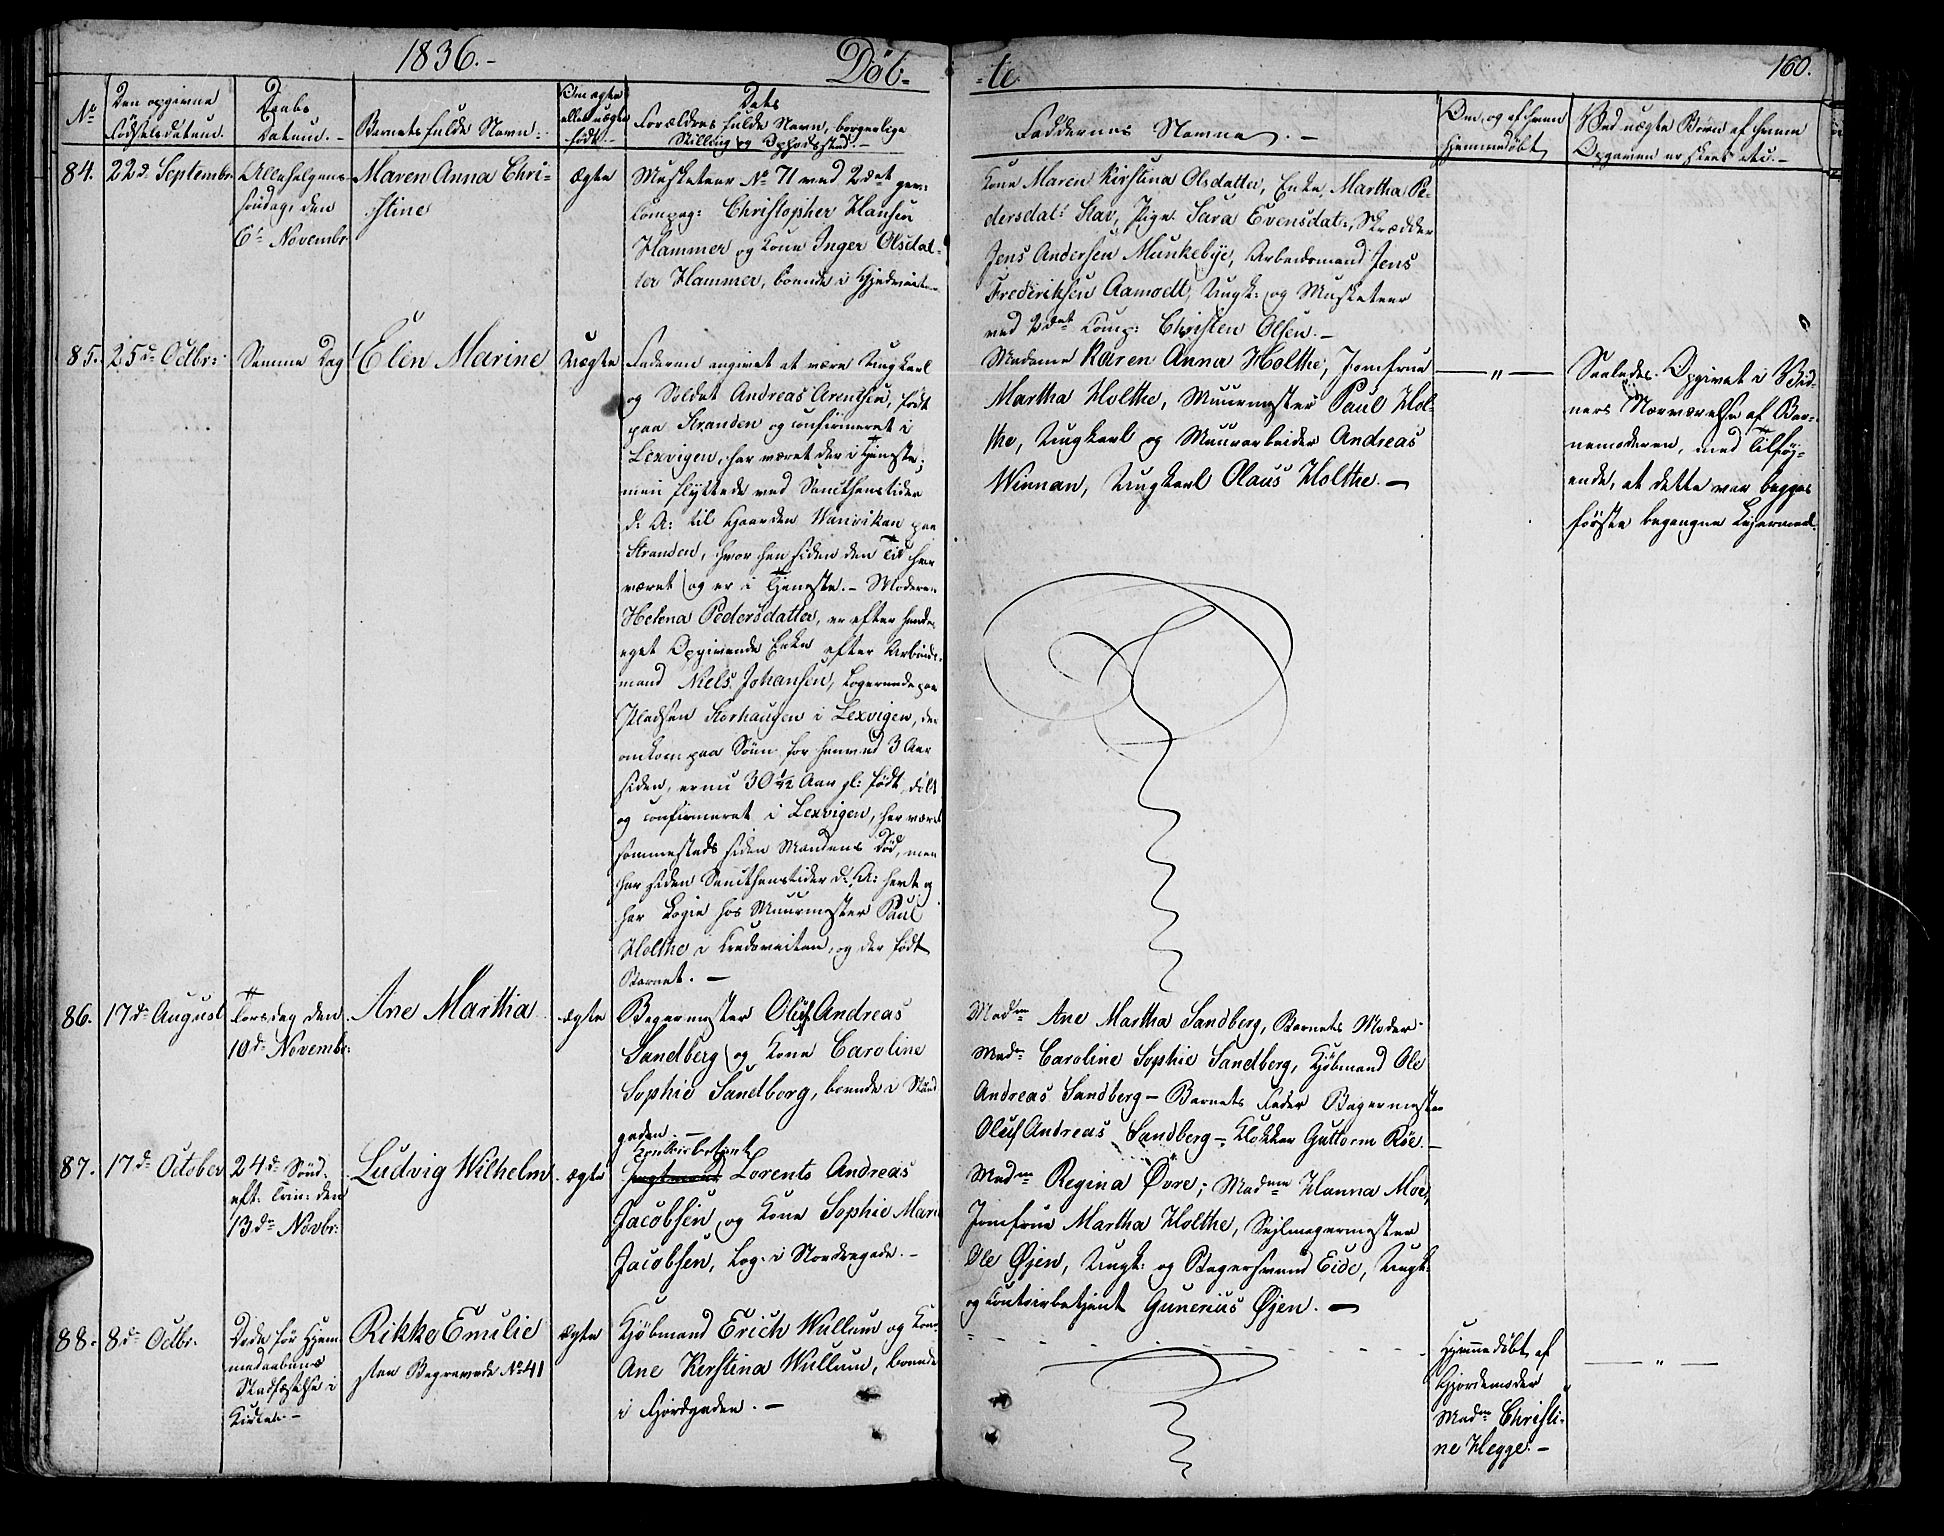 1836.-
Døb-
-te
160.
No
Den opgivne
Fødselsdatum.
Daabs
Datum.-
Barnets fulde Navn.
Om ægte
eller uægte
født.-
Dets
Forældres fulde Navn, borgerlige
Stilling og Opholdssted.-
Faddernes Navne.-
Om, og af hvem
hjemmedøbt
Ved uægte Børn af hvem
Opgaven er skeet etc.-
84.
22de Septembr.
Allehelgens
søndag, den
6te Novembr
Maren Anna Chri-
stine
ægte
Musketeer No 71 ved 2det gev:
Compag: Christopher Hansen
Hammer og Kone Inger Olsdat-
ter Hammer, boende i
Kone Maren Kirstina Olsdatter, Enke Martha Pe-
dersdat: Stav, Pige Sara Evensdat:, Skrædder
Jens Andersen Munkebye, Arbeidsmand Jens
Frederiksen Aamodt, Ungk: og Musketeer
ved 2det Comp: Christen Olsen.-
85.
25de Octbr:
Samme Dag
Elen Marine
Uægte
Faderen angivet at være Ungkarl
og Soldat Andreas Arentsen, født
paa Stranden og confirmeret i
Lexvigen, har været der i Tjeneste;
men flyttede ved Sancthanstider
d: A: til Gaarden Wanvikan paa
Stranden, hvor han siden den Tid har
været og er i Tjeneste.- Moderen
Helena Pedersdatter, er efter hendes
eget Opgivende Enke efter Arbeids-
mand Niels Johansen, Logerende paa
Pladsen Storhaugen i Lexvigen, der
omkom paa Søen for henved 3 Aar
siden, er nu 30 1/2 Aar gl: født, døbt
og confirmeret i Lexvigen, har været
sammesteds siden Mandens Død, men
har siden Sancthanstider d: A: havt og
har Logie hos Muurmester Paul
Holthe i, og der født
Barnet.-
Madame Karen Anna Holthe, Jomfrue
Martha Holthe, Muurmester Paul Hol-
the, Ungkarl og Muurarbeider Andreas
Winnan, Ungkarl Olaus Holthe.-
- " -
Saaledes Opgivet i Vid-
ners Nærværelse af Bar-
nemoderen, med Tilføj-
ende, at dette var begges
første begangne Lejermaal.
86.
17de August
Torsdag den
10de Novembr:
Ane Marthia
ægte
Bagermester Oluf Andreas
Sandberg og Kone Caroline
Sophie Sandberg, boende i Strand
gaden.-
Madme Ane Martha Sandberg, Barnets Moder
Madme Caroline Sophie Sandberg, Kjøbmand Ole
Andreas Sandberg - Barnets Fader Bagermester
Oluf Andreas Sandberg - Klokker Guttorm Røe.-
87.
17de October
24de Sønd.
eft: Trin: den
13de Novbr:
Ludvig Wilhelm
ægte
Contoirbetjent
Lorents Andreas
Jacobsen og Kone Sophie Marie
Jacobsen, Log. i Nordregade.-
Madme Regina Øvre; Madme Hanna Moe,
Jomfrue Martha Holthe, Sejlmagermester
Ole Øjen, Ungk: og Bagersvend Eide, Ungk:
og Contoirbetjent Gunerius Øjen.-
88.
8de Octbr:
Døde før Hjem-
medaabens
Stadfæstelse i
Kirken.-
Rikke Emilie
sten Begravede No 41
ægte
Kjøbmand Erich Wullum og Kone
Ane Kerstina Wullum, boende
i Fjordgaden.-
Hjemmedøbt af
Gjordemoder
Madme Christi-
ne Hegge.-
- " -